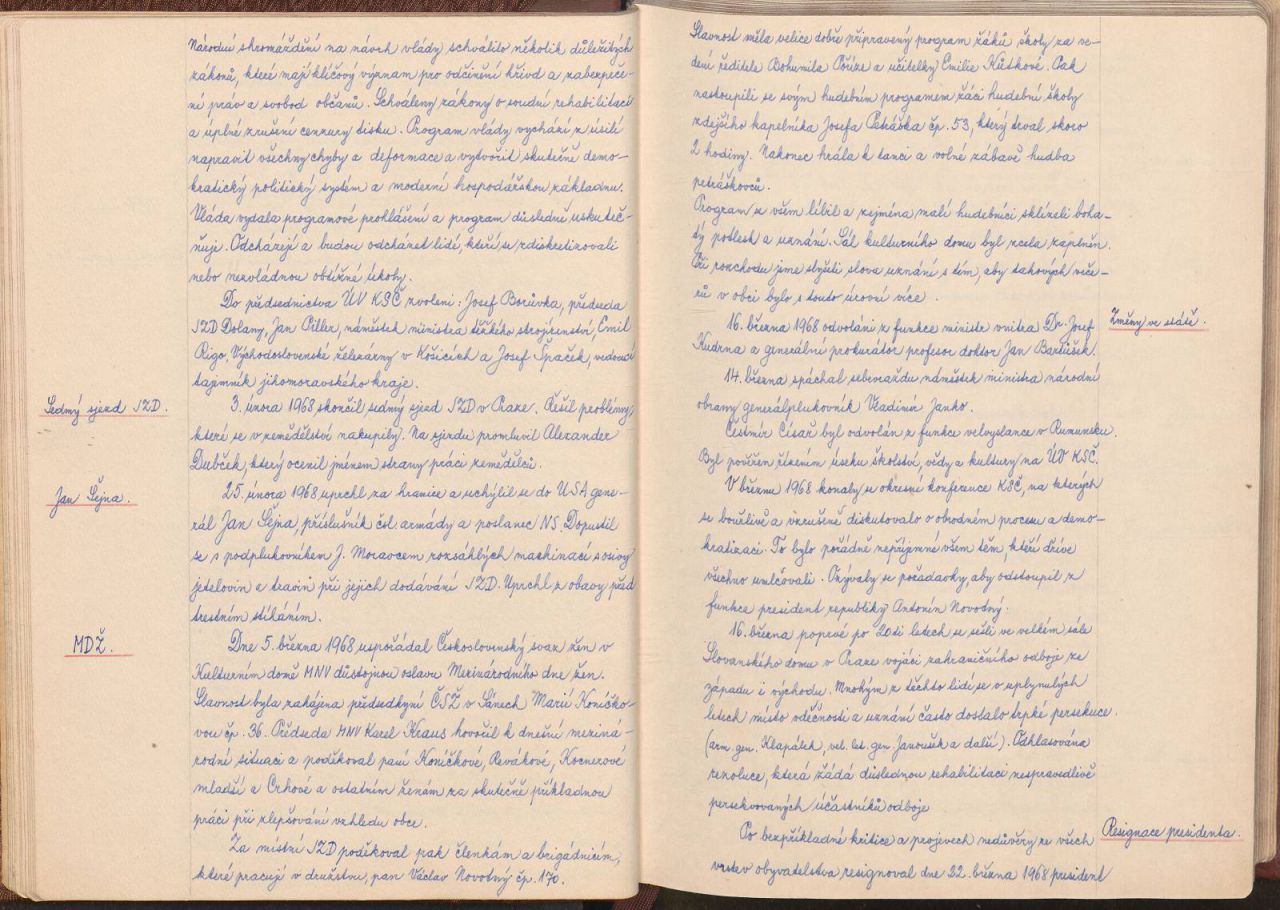 Národní shromáždění na návrh vlády schválilo několik důležitých
zákonů, které mají klíčový význam pro odčinění křivd a zabezpeče-
ní práv a svobod občanů. Schváleny zákony o soudní rehabilitaci
a úplné zrušení cenzury tisku. Program vlády vychází z úsilí
napravit všechny chyby a deformace a vytvořit skutečně demo-
kratický politický systém a moderní hospodářskou základnu.
Vláda vydala programové prohlášení a program důsledně uskuteč-
ňuje. Odcházejí a budou odcházet lidí, kteří se zdiskretizovali
nebo nezvládnou obtížné úkoly.
Do předsednictva ÚV KSČ zvoleni: Josef Borůvka, předseda
JZD Dolany, Jan Piller, náměstek ministra těžkého strojírenství, Emil
Rigo, Východoslovenské železárny v Košicích a Josef Špaček, vedoucí
tajemník jihomoravského kraje.
Sedmý sjezd JZD.
3. února 1968 skončil sedmý sjezd JZD v Praze. Řešil problémy,
které se v zemědělství nakupily. Na sjezdu promluvil Alexander
Dubček, který ocenil jménem strany práci zemědělců.
Jan Šejna.
25. února 1968 uprchl za hranice a uchýlil se do USA gene-
rál Jan Šejna, příslušník čsl. armády a poslanec NS. Dopustil
se s podplukovníkem J. Moravcem rozsáhlých machinací s osivy
jetelovin a travin při jejich dodávání JZD. Uprchl z obavy před
trestním stíháním.
MDŽ.
Dne 5. března 1968 uspořádal Československý svaz žen v
Kulturním domě MNV důstojnou oslavu Mezinárodního dne žen.
Slavnost byla zahájena předsedkyní ČSŽ v Sánech Marií Koníčko-
vou čp. 36. Předseda MNV Karel Kraus hovořil k dnešní meziná-
rodní situaci a poděkoval paní Koníčkové, Revákové, Kocnerové
mladší a Crhové a ostatním ženám za skutečně příkladnou
práci při zlepšování vzhledu obce.
Za místní JZD poděkoval pak členkám a brigádnicím,
které pracují v družstvu, pan Václav Novotný čp. 170.
Slavnost měla velice dobře připravený program žáků školy za ve-
dení ředitele Bohumila Pouze a učitelky Emilie Kůtkové. Pak
nastoupili se svým hudebním programem žáci hudební školy
zdejšího kapelníka Josefa Petráška čp. 53, který trval skoro
2 hodiny. Nakonec hrála k tanci a volné zábavě hudba
petráškovců.
Program se všem líbil a zejména malí hudebníci sklízeli boha-
tý potlesk a uznání. Sál kulturního domu byl zcela zaplněn.
Při rozchodu jsme slyšeli slova uznání s tím, aby takových veče-
rů v obci bylo s touto úrovní více.
Změny ve státě.
16. března 1968 odvoláni z funkce ministr vnitra Dr. Josef
Kudrna a generální prokurátor profesor doktor Jan Bartušek.
14. března spáchal sebevraždu náměstek ministra národní
obrany generálplukovník Vladimír Janko.
Čestmír Císař byl odvolán z funkce velvyslance v Rumunsku.
Byl pověřen řízením úseku školství, vědy a kultury na ÚV KSČ.
V březnu 1968 konaly se okresní konference KSČ, na kterých
se bouřlivě a vzrušeně diskutovalo o obrodném procesu a demo-
kratizaci. To bylo pořádně nepříjemné všem těm, kteří dříve
všechno umlčovali. Ozývaly se požadavky, aby odstoupil z
funkce president republiky Antonín Novotný.
16. března poprvé po 20ti letech se sešli ve velkém sále
Slovanského domu v Praze vojáci zahraničního odboje ze
západu i východu. Mnohým z těchto lidí se v uplynulých
letech místo vděčnosti a uznání často dostalo trpké persekuce.
(arm. gen. Klapálek, vel. let. gen. Janoušek a další). Odhlasována
rezoluce, která žádá důslednou rehabilitaci nespravedlivě
persekvovaných účastníků odboje.
Resignace presidenta.
Po bezpříkladné kritice a projevech nedůvěry ze všech
vrstev obyvatelstva resignoval dne 22. března 1968 president